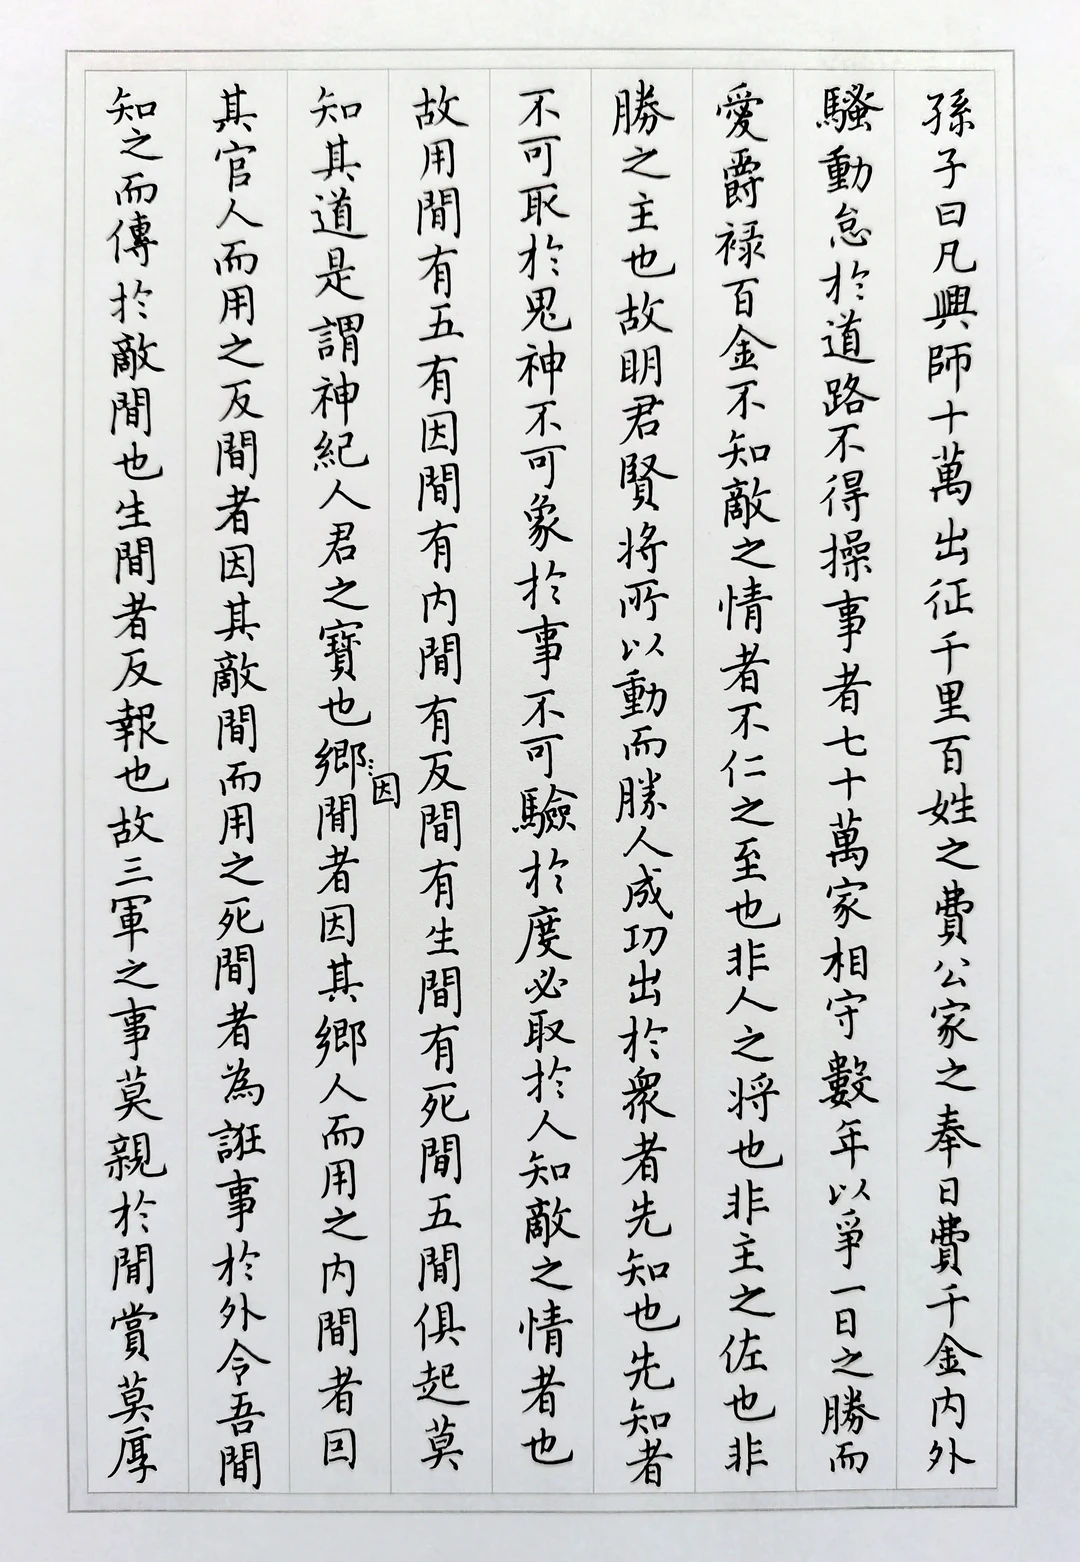 孫子曰凡興師十萬出征千里百姓之費公家之奉日費千金內外
騷動怠於道路不得操事者七十萬家相守數年以爭一日之勝而
愛爵祿百金不知敵之情者不仁之至也非人之將也非主之佐也非
勝之主也故明君賢將所以動而勝人成功出於眾者先知也先知者
不可取於鬼神不可象於事不可驗於度必取於人知敵之情者也
故用間有五有因間有內間有反間有生間有死間五間俱起莫
知其道是謂神紀人君之寶也鄉間者因其鄉人而用之內間者因
因
其官人而用之反間者因其敵間而用之死間者為誑事於外令吾間
知之而傳於敵間也生間者反報也故三軍之事莫親於間賞莫厚